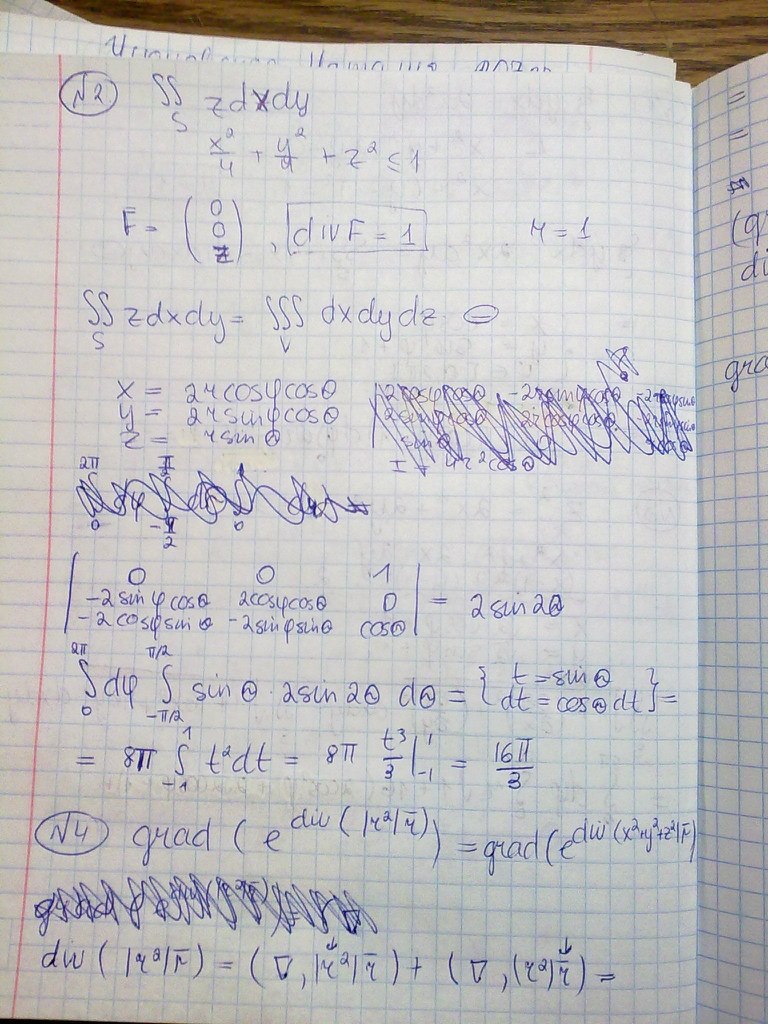 №2 ∬_S zdxdy
x²/4 + y²/4 + z² ≤ 1
F̄ = (0 0 z), div F = 1 r = 1
∬_S zdxdy = ∭_V dxdydz =
x = 2r cosφ cosθ
y = 2r sinφ cosθ
z = r sinθ
I = 4r² cosθ
| 0 0 1 |
| -2 sinφ cosθ 2cosφcosθ 0 | = 2 sin 2θ
| -2 cosφ sinθ -2sinφsinθ cosθ |
∫_0^{2π} dφ ∫_{-π/2}^{π/2} sinθ · 2sin 2θ dθ = { t = sinθ dt = cosθ dt } =
= 8π ∫_{-1}^{1} t²dt = 8π t³/3 |_{-1}^{1} = 16π/3
№4 grad (e^{div (|r²|r̄)}) = grad(e^{div (x²+y²+z²|r̄)
div (|r²|r̄) = (∇, |r²|r̄) + (∇, (r²)r̄) =
=
=
(gr
di
gra